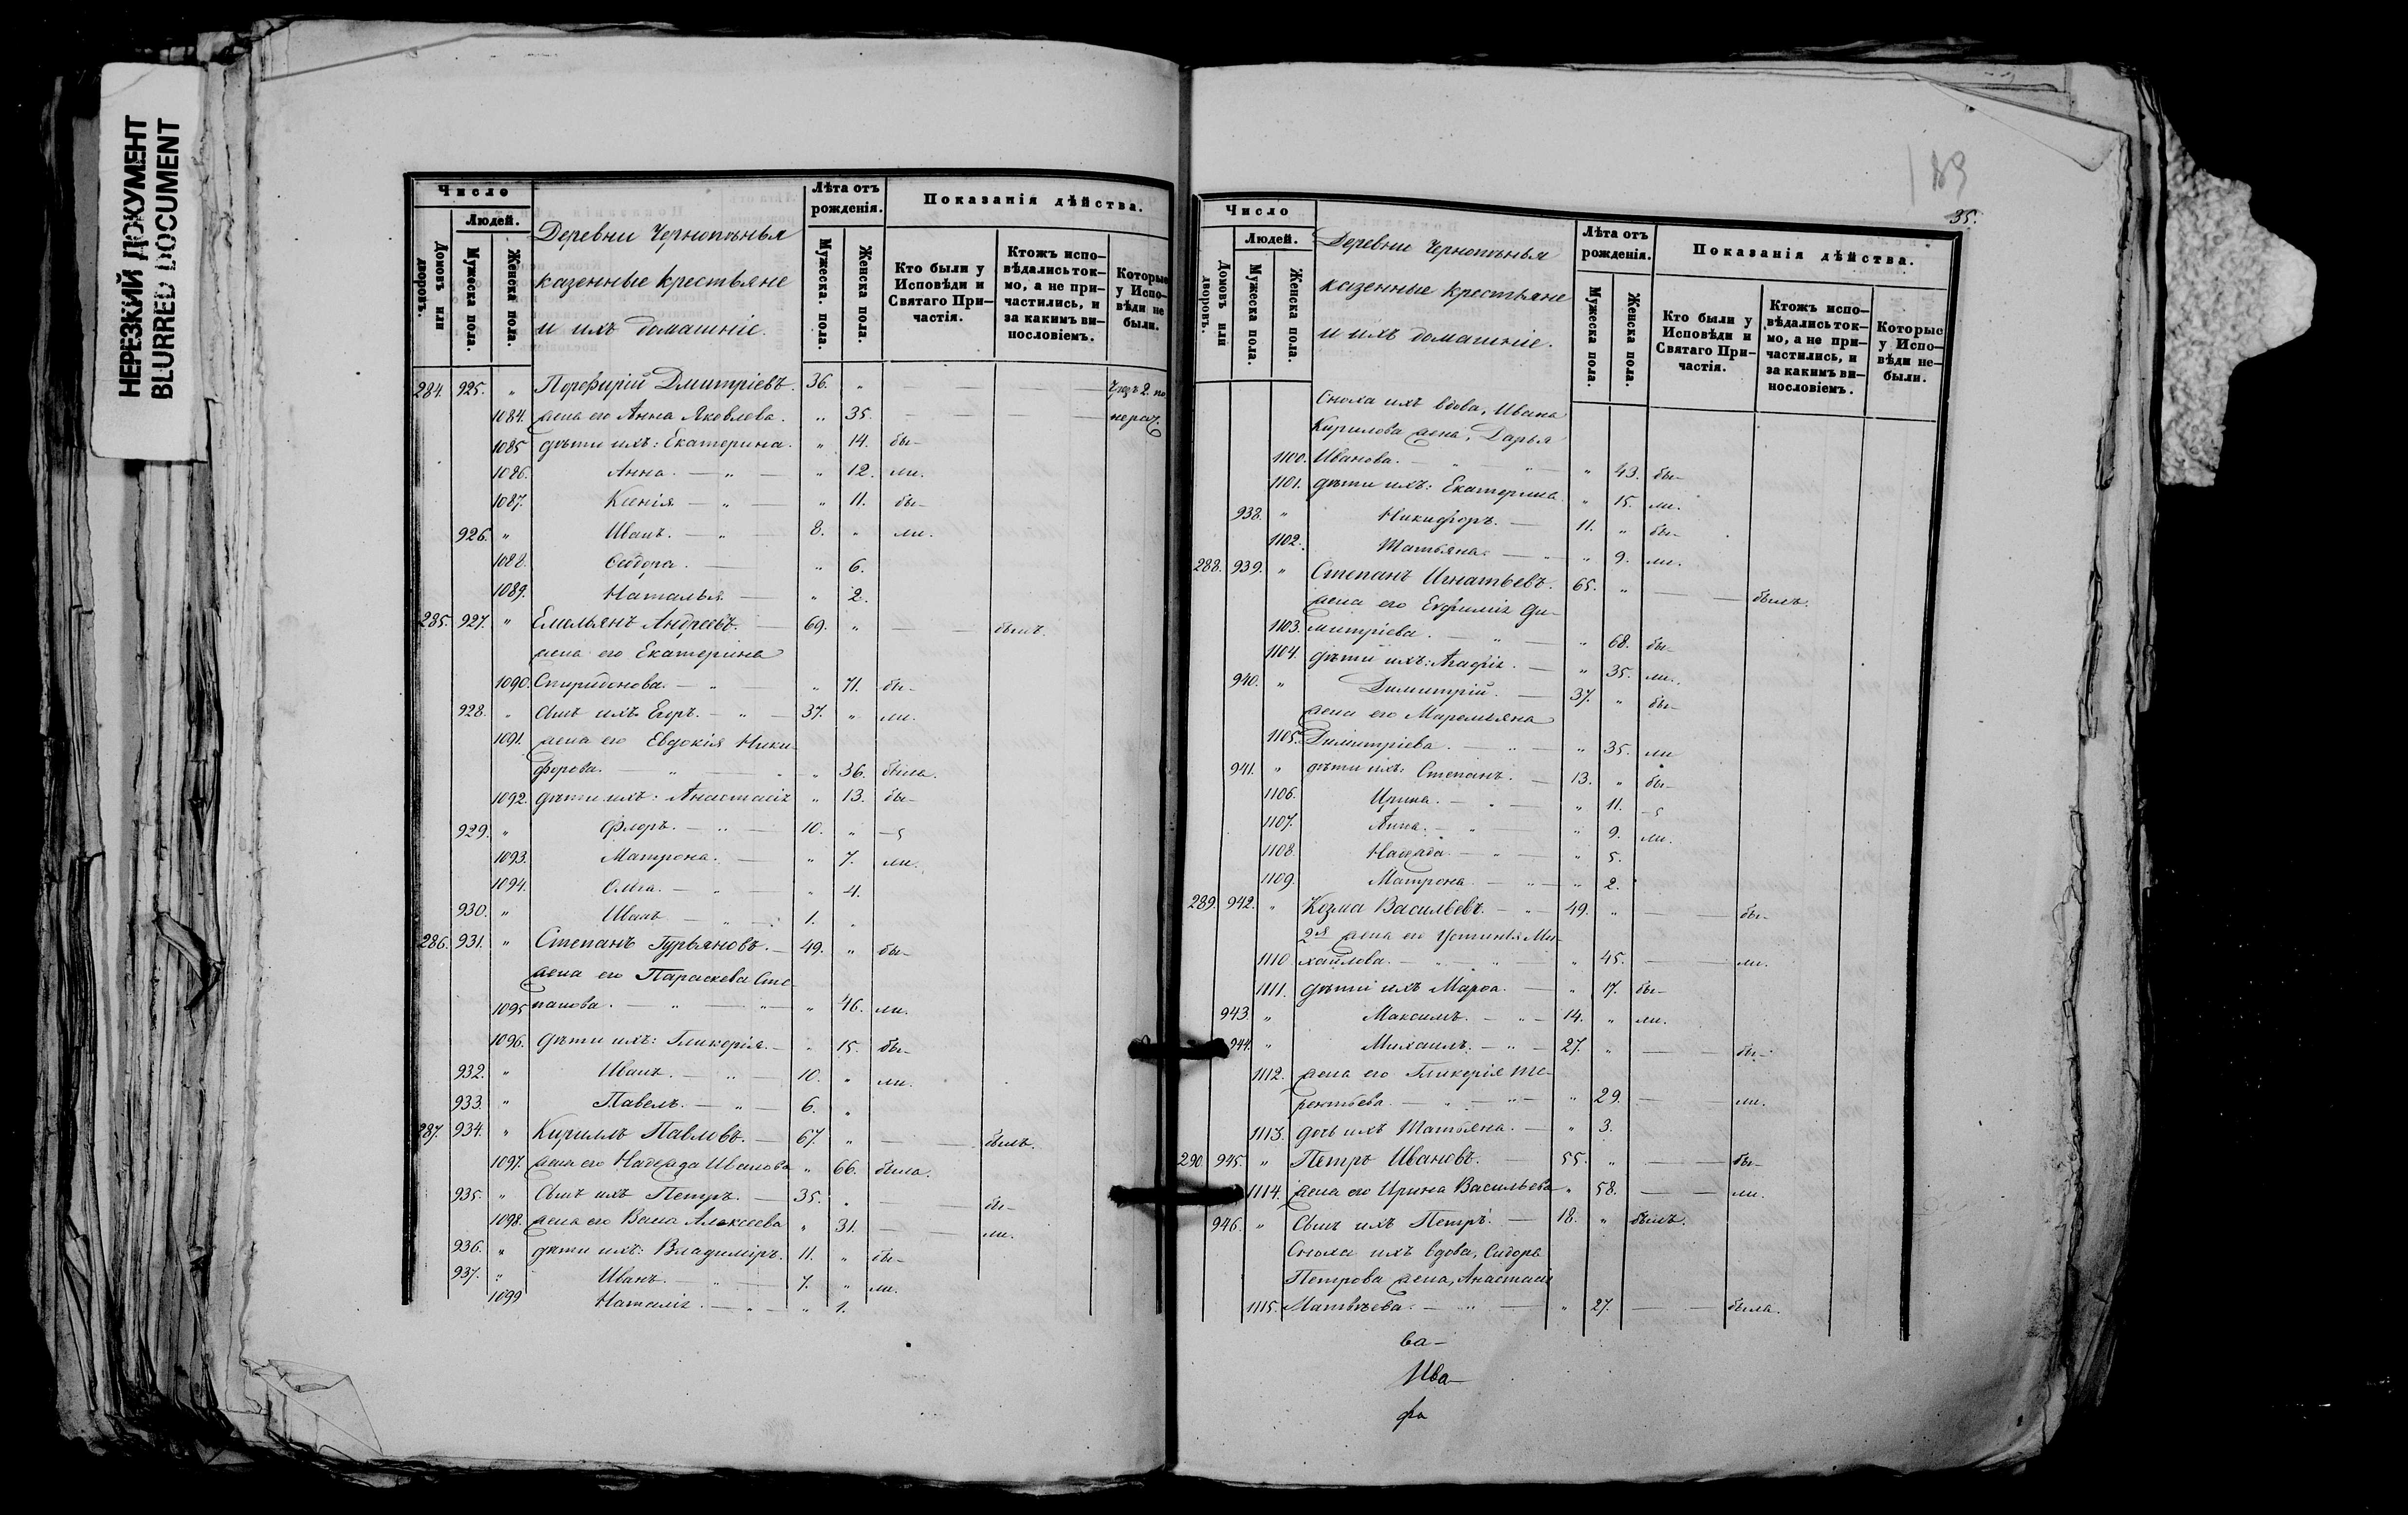 НЕРЕЗКИЙ ДОКУМЕНТ
BLURRED DOCUMENT
Число
Людей.
Домовъ или дворовъ.
Мужеска пола.
Женска пола.
Деревни Чернопенья
казенные крестьяне
и ихъ домашніе.
Лѣта отъ рожденія.
Мужеска пола.
Женска пола.
Показанія дѣйства.
Кто были у Исповѣди и Святаго При-частія.
Ктожъ испо-вѣдались ток-мо, а не при-частились, и за какимъ ви-нословіемъ.
Которые у Испо-вѣди не были.
284. 925. " Порфирій Дмитріевъ. 36. " — 2. по
1084. жена его Анна Яковлева. " 35. — — нерад.
1085 дѣти ихъ: Екатерина. " 14. бы-
1086. Анна. — " — " 12. ли.
1087. Ксенія — " — " 11. бы-
926. " Иванъ. — " — 8. " ли.
1088. Ѳеодора. — " 6.
1089. Наталья — " 2.
285. 927. " Емельянъ Андреевъ. — 69. " — — былъ.
жена его Екатерина
1090. Спиридонова. — " — " 71. бы-
928. " Сынъ ихъ Егоръ. — " — 37. " ли.
1091. жена его Евдокія Ники-
форова. — " — " 36. была.
1092. дѣти ихъ: Анастасія " 13. бы-
929. " Флоръ. — " — 10. " —
1093. Матрона. — " 7. ли.
1094. Ольга. — " — " 4.
930. " Иванъ — " — 1. "
286. 931. " Степанъ Гурьяновъ. — 49. " бы-
жена его Параскева Сте-
1095 панова. — " — " — " 46. ли.
1096. дѣти ихъ: Гликерія. — " 15. бы-
932. " Иванъ. — " — 10. " ли.
933. " Павелъ. — " — 6. "
287. 934. " Кириллъ Павловъ. — 67. " — — былъ.
1097. жена его Надежда Иванова " 66. была.
935. " Сынъ ихъ Петръ. — 35. " — — бы-
1098. жена его Васса Алексеева " 31. — — ли.
936. " дѣти ихъ: Владиміръ. 11. " бы-
937. " Иванъ. — " — 7. " ли.
1099 Наталія. — " — " 1.
189
35.
Число
Людей.
Домовъ или дворовъ.
Мужеска пола.
Женска пола.
Деревни Чернопенья
казенные крестьяне
и ихъ домашніе.
Лѣта отъ рожденія.
Мужеска пола.
Женска пола.
Показанія дѣйства.
Кто были у Исповѣди и Святаго При-частія.
Ктожъ испо-вѣдались ток-мо, а не при-частились, и за какимъ ви-нословіемъ.
Которые у Испо-вѣди не-были.
Сноха ихъ вдова, Ивана
Кирилова жена, Дарья
1100. Иванова. — " — " — " 43. бы-
1101. дѣти ихъ: Екатерина " 15. ли.
938. " Никифоръ. — 11. " бы-
1102. Татьяна. — " — " 9. ли.
288. 939. " Степанъ Игнатьевъ. 65. " — — былъ.
жена его Евфимія Ди-
1103. митріева. — " — " 68. бы-
1104. дѣти ихъ: Агафія. — " 35. ли.
940. " Димитрій. — 37. " бы-
жена его Маремьяна
1105. Димитріева. — " — " 35. ли
941. " дѣти ихъ: Степанъ. — 13. " бы-
1106. Ирина. — " — " 11. —
1107. Анна. — " — " 9. ли.
1108. Надежда. — " — " 5.
1109. Матрона — " — " 2.
289. 942. " Козма Васильевъ. — " — 49. " — — бы-
2я жена его Устинія Ми-
1110. хайлова. — " — " — " 45. — — ли.
1111. дѣти ихъ Марѳа. — " 17. бы-
943. " Максимъ. — " — 14. " ли.
944. " Михаилъ. — " — 27. " — — бы-
1112. жена его Гликерія Те-
рентьева. — " — " — " 29. — — ли.
1113. дочь ихъ Татьяна. — " 3.
290. 945. " Петръ Ивановъ. — 55. " — — бы-
1114. жена его Ирина Васильева " 58. — — ли.
946. " Сынъ ихъ Петръ. — 18. " былъ.
Сноха ихъ вдова, Сидора
Петрова жена, Анастасія
1115. Матвѣева. — " — " 27. — — была.
ва-
Ива-